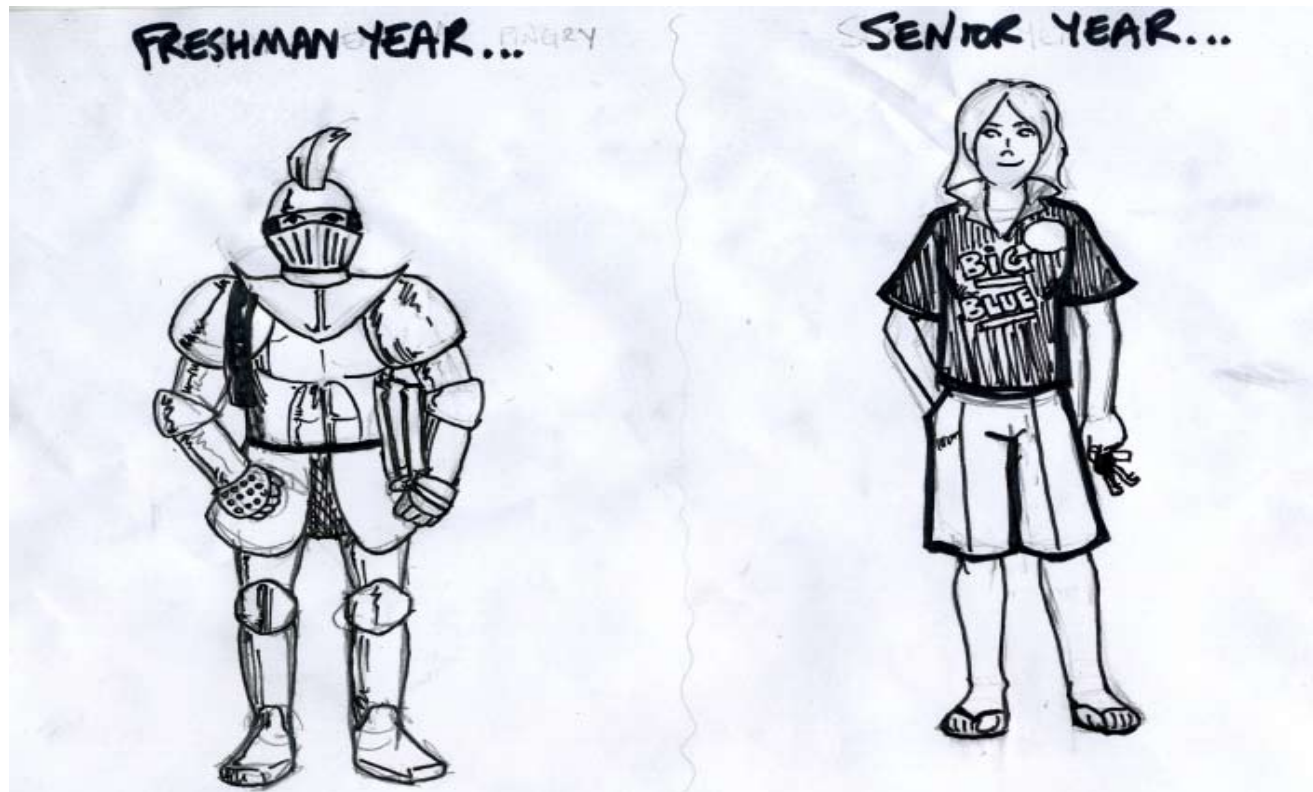 FRESHMAN YEAR...
PINGRY
SENIOR YEAR...
BIG
BLUE